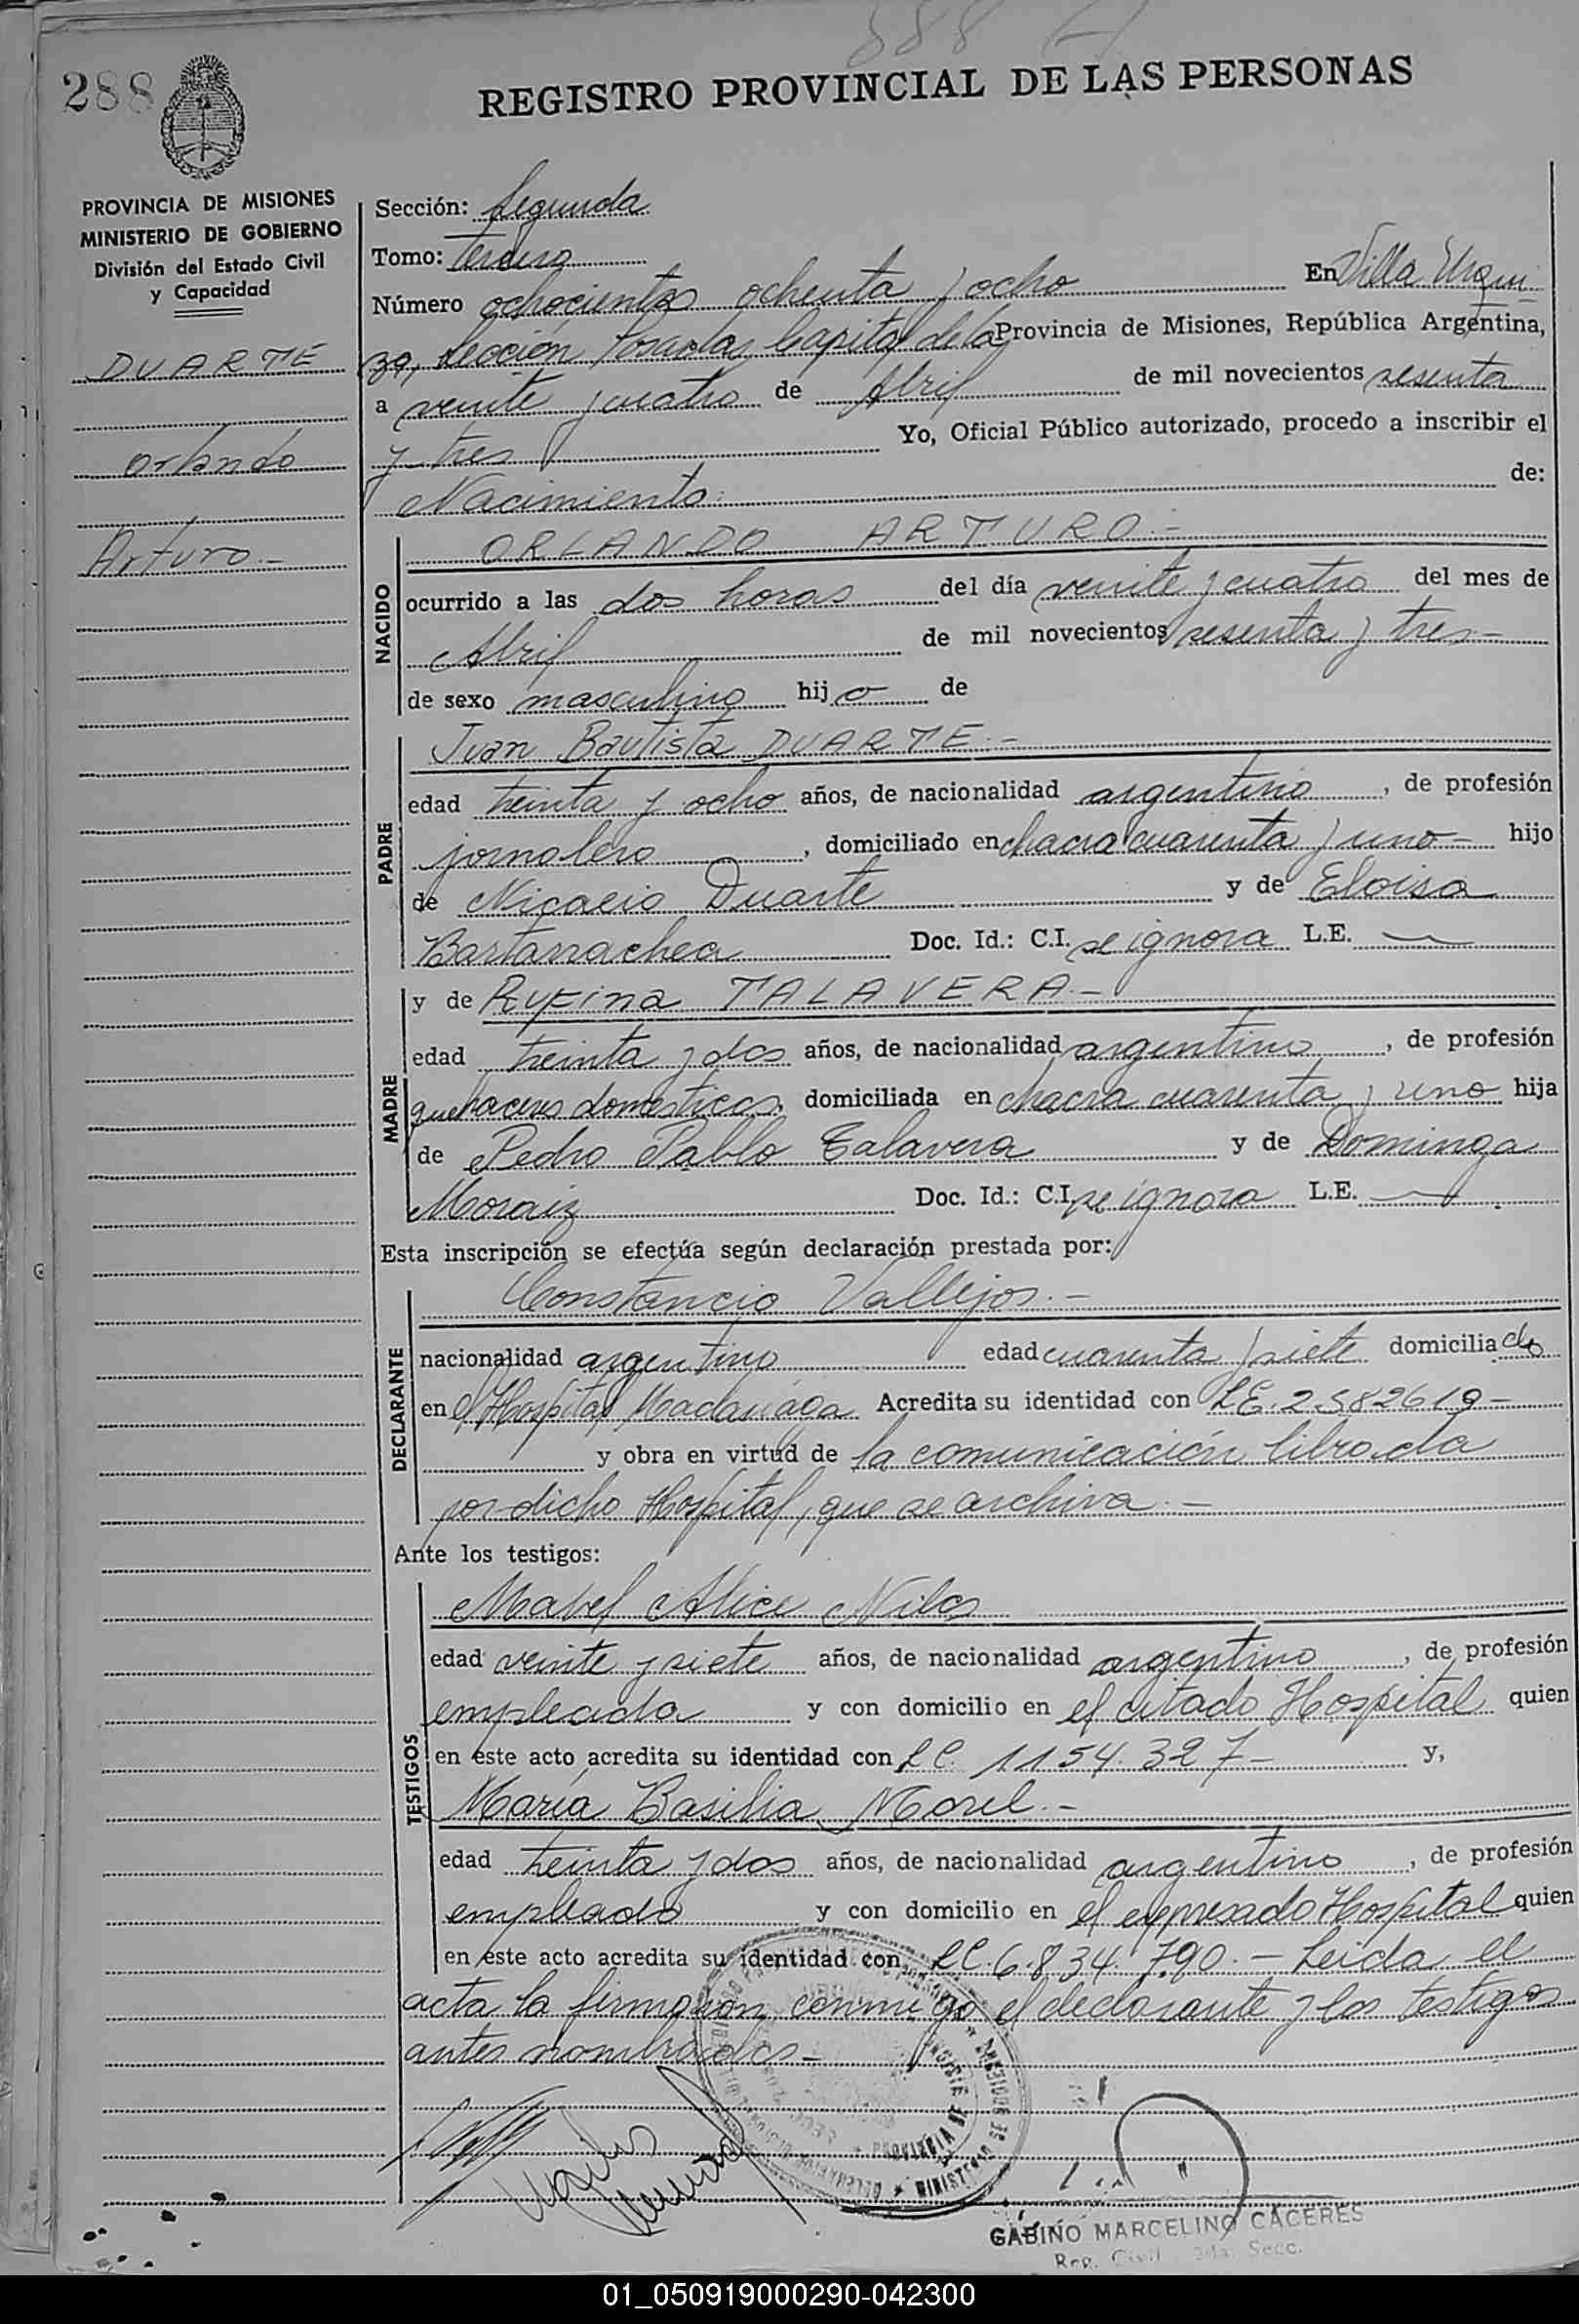 888
288
REGISTRO PROVINCIAL DE LAS PERSONAS
PROVINCIA DE MISIONES
MINISTERIO DE GOBIERNO
División del Estado Civil
y Capacidad
DUARTE
Orlando
Arturo.-
Sección: Segunda
Tomo: Tercero
Número ochocientos ochenta y ocho En Villa Urqui
za, Sección Posadas, Capital de la Provincia de Misiones, República Argentina,
a veinte y cuatro de Abril de mil novecientos sesenta
y tres Yo, Oficial Público autorizado, procedo a inscribir el
Nacimiento. de:
NACIDO
ORLANDO ARTURO.-
ocurrido a las dos horas del día veinte y cuatro del mes de
Abril de mil novecientos sesenta y tres.-
de sexo masculino hijo de
PADRE
Juan Bautista DUARTE.-
edad treinta y ocho años, de nacionalidad argentino, de profesión
jornalero, domiciliado en chacra cuarenta y uno- hijo
de Nicacio Duarte y de Eloisa
Bastarrachea Doc. Id.: C.I. se ignora L.E. —
MADRE
y de Rufina TALAVERA.-
edad treinta y dos años, de nacionalidad argentino, de profesión
quehaceres domesticos, domiciliada en chacra cuarenta y uno hija
de Pedro Pablo Talavera y de Dominga
Moraiz Doc. Id.: C.I. se ignora L.E. —
Esta inscripción se efectúa según declaración prestada por:
DECLARANTE
Constancio Vallejos.-
nacionalidad argentino edad cuarenta y siete domiciliado
en el Hospital Madariaga Acredita su identidad con L.E. 2582619-
y obra en virtud de la comunicación librada
por dicho Hospital, que se archiva.-
Ante los testigos:
TESTIGOS
Mabel Alice
edad veinte y siete años, de nacionalidad argentino, de profesión
empleada y con domicilio en el citado Hospital quien
en este acto acredita su identidad con L.C. 1154.327- y,
María Basilia Morel.-
edad treinta y dos años, de nacionalidad argentino, de profesión
empleado y con domicilio en el expresado Hospital quien
en este acto acredita su identidad con L.C. 6.834.790.- Leida el
acta la firmaron conmigo el declarante y los testigos
antes nombrados-
GABINO MARCELINO CACERES
Reg. Civil 2da. Secc.
01_050919000290-042300